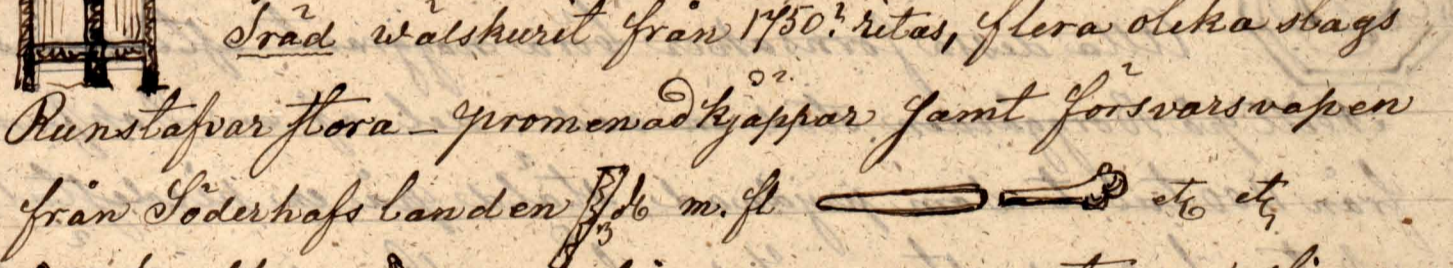 Träd wälskurit från 1750? ritas, flera olika slags
Runstafvar stora – promenadkjäppar samt försvarsvapen
från Söderhafslanden m. fl etc etc